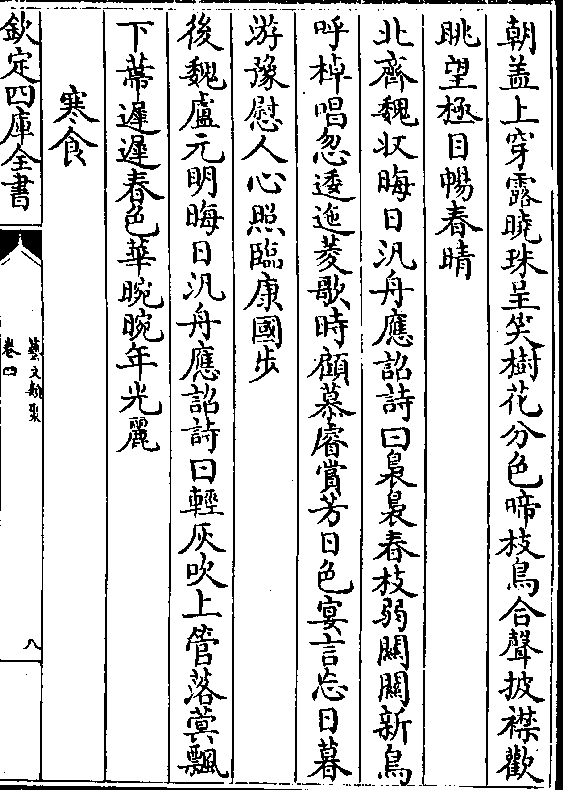 朝盖上穿露曉珠呈笑樹花分色啼枝鳥合聲披襟歡
眺望極目暢春晴
北齊魏収晦日汎舟應詔詩曰裊裊春枝弱關關新鳥
呼棹唱忽逶迤菱歌時顧慕睿賞芳日色宴言忘日暮
游豫慰人心照臨康國步
後魏盧元明晦日汎舟應詔詩曰輕灰吹上管落蓂飄
下蔕遲遲春色華晼晼年光麗
寒食
欽定四庫全書
藝文類聚
卷四
八